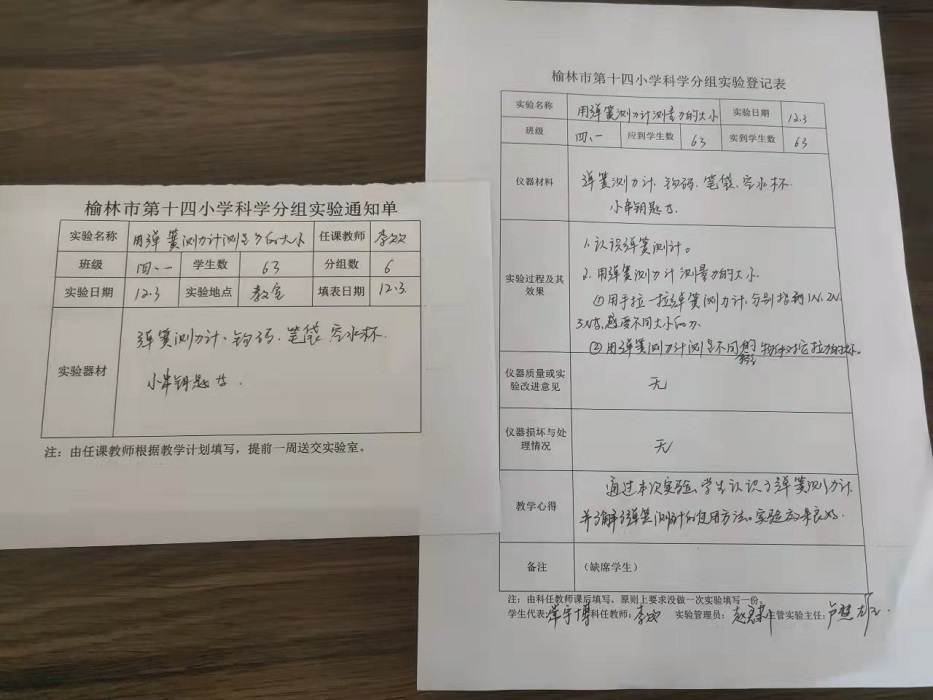 榆林市第十四小学科学分组实验通知单
实验名称 用弹簧测力计测量力的大小 任课教师 李欢
班级 四、一 学生数 63 分组数 6
实验日期 12.3 实验地点 教室 填表日期 12.3
实验器材 弹簧测力计、钩码、笔袋、空水杯、
小串钥匙等.
注：由任课教师根据教学计划填写，提前一周送交实验室。
榆林市第十四小学科学分组实验登记表
实验名称 用弹簧测力计测量力的大小 实验日期 12.3
班级 四、一 应到学生数 63 实到学生数 63
仪器材料 弹簧测力计、钩码、笔袋、空水杯、
小串钥匙等.
实验过程及其效果
1.认识弹簧测计。
2.用弹簧测力计测量力的大小.
①用手拉一拉弹簧测力计,分别指到1N、2N、
3N等,感受不同大小的力.
②用弹簧测力计测量不同的物体对它拉力的大小。
仪器质量或实验改进意见 无
仪器损坏与处理情况 无
教学心得 通过本次实验,学生认识了弹簧测力计,
并了解了弹簧测力计的使用方法。实验效果良好.
备注 （缺席学生）
注：由科任教师课后填写，原则上要求没做一次实验填写一份。
学生代表: 宇博 科任教师: 李欢 实验管理员: 赵 主管实验主任: 卢慧